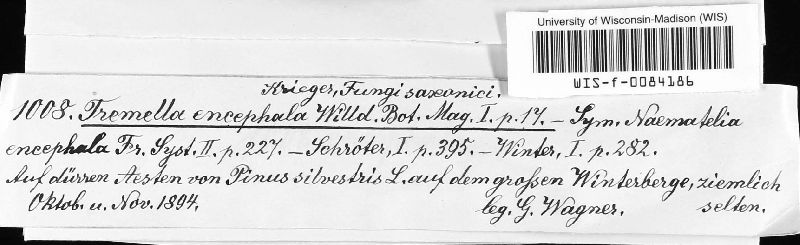 University of Wisconsin-Madison (WIS)
WIS-f-0084186
Krieger, Fungi saxonici.
1008. Tremella encephala Willd. Bot. Mag. I. p. 17. – Sym. Naematelia
encephala Fr. Syst. II. p. 227. – Schröter, I. p. 395. – Winter, I. p. 282.
Auf dürren Aesten von Pinus silvestris L. auf dem großen Winterberge, ziemlich
Oktob. u. Nov. 1894. leg. G. Wagner. selten.